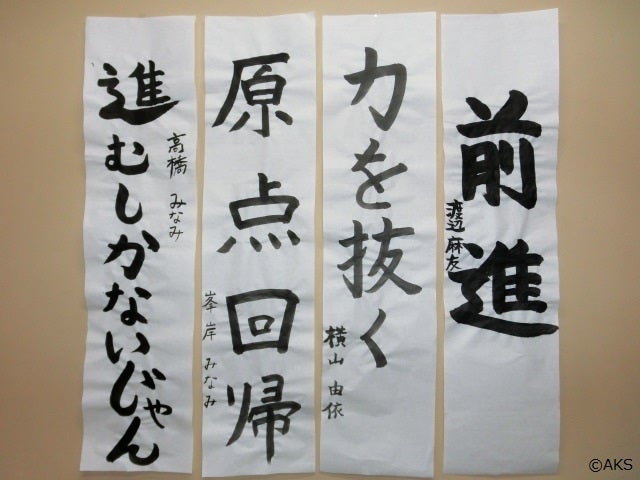 前進
渡辺 麻友
力を抜く
横山 由依
原点回帰
峯岸 みなみ
進むしかないじゃん
高橋 みなみ
©AKS